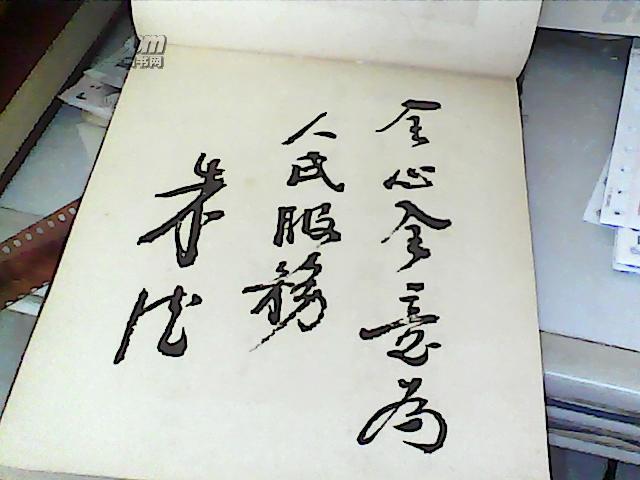 全心全意为
人民服務
朱德
书网